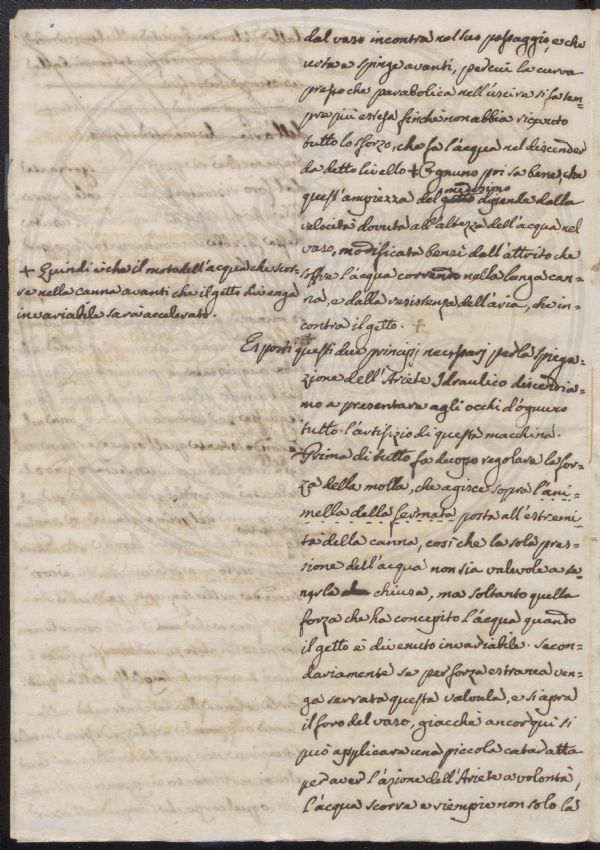 dal vaso incontra nel suo passaggio e che
urta e spinge avanti, per cui la curva
presso che parabolica nell'uscire si fa sem-
pre più estesa finchè non abbia ricevuto
tutto lo sforzo, che fa l'acqua nel discender
da detto livello + Ognuno poi sa bene, che
quest'ampiezza del getto medesimo dipende dalla
velocità dovuta all'altezza dell'acqua nel
vaso, modificata bensì dall'attrito che
soffre l'acqua correndo nella lunga can-
na, e dalla resistenza dell'aria, che in-
contra il getto. +
+ Quindi è che il moto dell'acqua che scor-
re nella canna avanti che il getto divenga
invariabile sarà accelerato.
Esposti questi due principj necessarj per la spiega-
zione dell'Ariete Idraulico discendia-
mo a presentare agli occhi d'ognuno
tutto l'artifizio di questa macchina.
Prima di tutto fa duopo regolare la for-
za della molla, che agisce sopra l'ani-
mella della fermata posta all'estremi
tà della canna, così che la sola pres-
sione dell'acqua non sia valevole a te-
nerla chiusa, ma soltanto quella
forza che ha concepito l'acqua quando
il getto è divenuto invariabile. Secon-
dariamente se per forza estranea ven-
ga serrata questa valvula, e si apra
il foro del vaso, giacchè ancor qui si
può applicare una piccola cateratta
per aver l'azione dell'Ariete a volontà,
l'acqua scorre e riempie non solo la